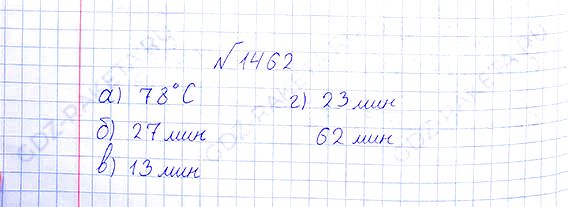 №1462
а) 78°C
б) 27 мин
в) 13 мин
г) 23 мин
62 мин
GDZ-RAKETA.RU
GDZ-RAKETA.RU
GDZ-RAKETA.RU
GDZ-RAKETA.RU